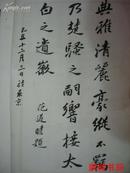 典雅清麗豪縱不羈
乃楚騷之嗣響接太
白之遺徽 范道時題
十二月三日於東京